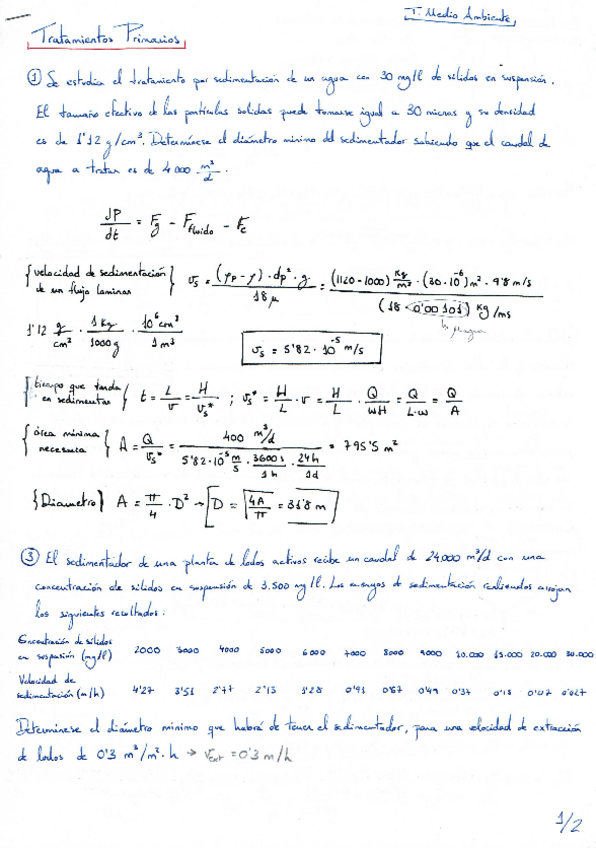 T. Medio Ambiente
Tratamientos Primarios
① Se estudia el tratamiento por sedimentación de un agua con 30 mg/l de sólidos en suspensión.
El tamaño efectivo de las partículas solidas puede tomarse igual a 30 micras y su densidad
es de 1'12 g/cm³. Determínese el diámetro mínimo del sedimentador sabiendo que el caudal de
agua a tratar es de 4000 m³/d.
dP/dt = Fg - Ffluido - Fc
{velocidad de sedimentación de un flujo laminar} vs = (ρp - ρ) · dp² · g / 18 μ = (1120 - 1000) kg/m³ · (30·10⁻⁶)² m² · 9'8 m/s / (18 · 0'00101) kg/ms
1'12 g/cm³ · 1 kg/1000 g · 10⁶ cm³/1 m³
vs = 5'82 · 10⁻⁵ m/s
{tiempo que tarda en sedimentar} t = L/v = H/vs* ; vs* = H/L · v = H/L · Q/wH = Q/L·w = Q/A
{área mínima necesaria} A = Q/vs* = 400 m³/d / 5'82·10⁻⁵ m/s · 3600 s/1h · 24h/1d = 795'5 m²
{Diametro} A = π/4 · D² → D = √4A/π = 31'8 m
③ El sedimentador de una planta de lodos activos recibe un caudal de 24.000 m³/d con una
concentración de sólidos en suspensión de 3.500 mg/l. Los ensayos de sedimentación realizados arrojan
los siguientes resultados:
Concentración de sólidos
en suspensión (mg/l) 2000 3000 4000 5000 6000 7000 8000 9000 10.000 15.000 20.000 30.000
Velocidad de
sedimentación (m/h) 4'27 3'51 2'77 2'13 1'28 0'91 0'67 0'49 0'37 0'15 0'07 0'027
Determínese el diámetro mínimo que habrá de tener el sedimentador, para una velocidad de extracción
de lodos de 0'3 m³/m²·h → vext = 0'3 m/h
1/2